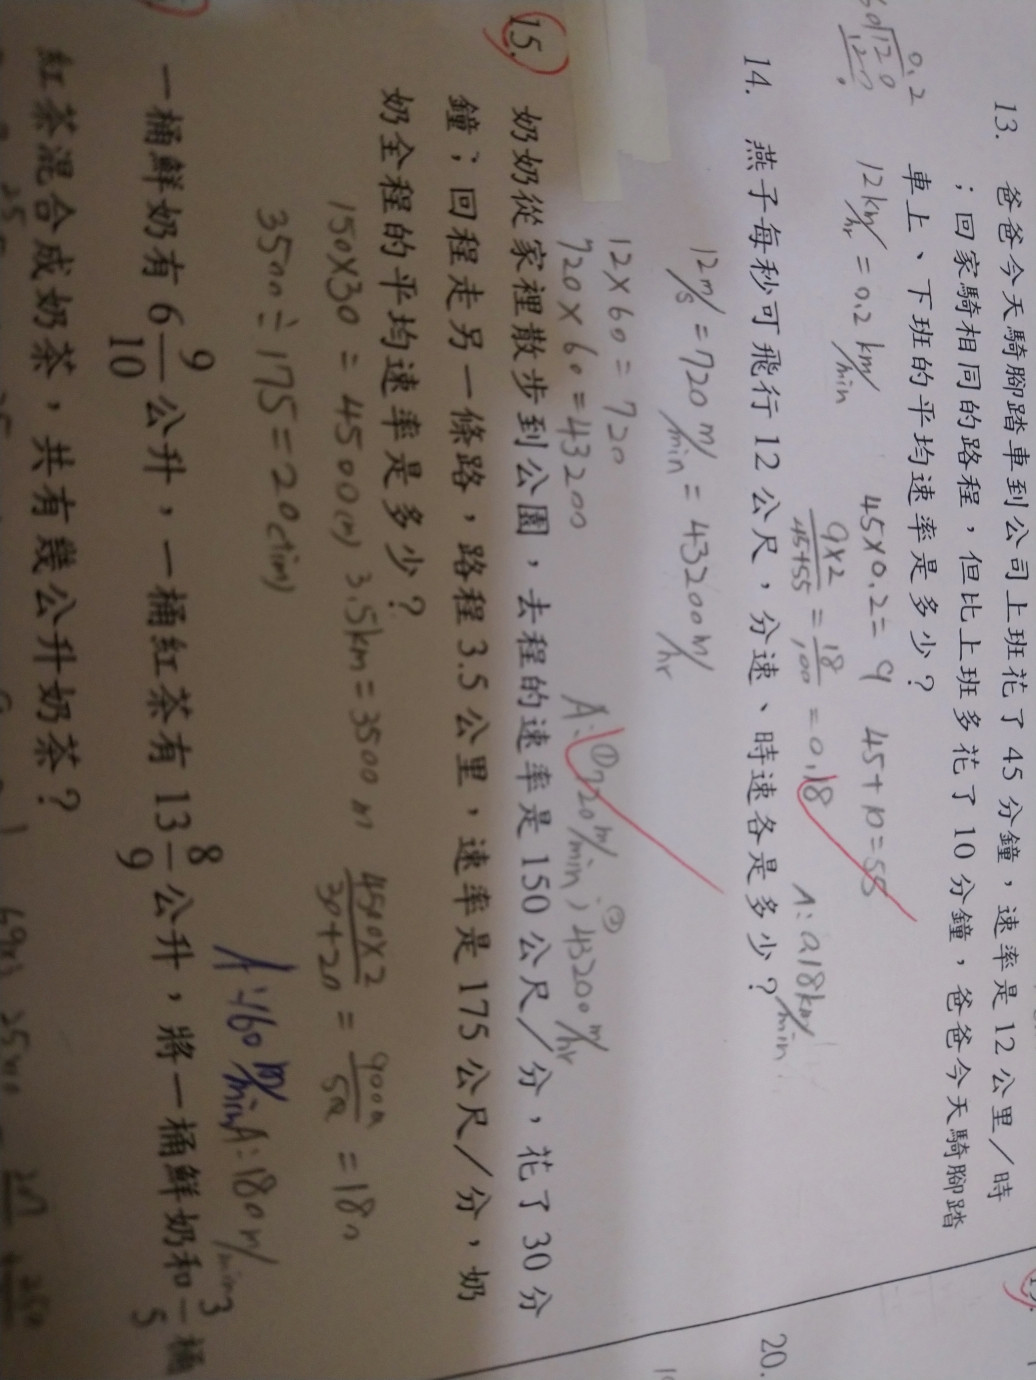 13. 爸爸今天騎腳踏車到公司上班花了 45 分鐘，速率是 12 公里／時
；回家騎相同的路程，但比上班多花了 10 分鐘，爸爸今天騎腳踏
車上、下班的平均速率是多少？
12 km/hr = 0.2 km/min
45×0.2= 9
45+10=55
9×2/45+55 = 18/100 = 0.18
A: 0.18 km/min
14. 燕子每秒可飛行 12 公尺，分速、時速各是多少？
12 m/s = 720 m/min = 43200 m/hr
12×60=720
720×60=43200
A: ①720 m/min; ②43200 m/hr
15. 奶奶從家裡散步到公園，去程的速率是 150 公尺／分，花了 30 分
鐘；回程走另一條路，路程 3.5 公里，速率是 175 公尺／分，奶
奶全程的平均速率是多少？
150×30=4500(m) 3.5km=3500m
3500÷175=20(min)
4500×2/30+20 = 9000/50 = 180
A: 160 m/min
A: 180 m/min
一桶鮮奶有 6 9/10 公升，一桶紅茶有 13 8/9 公升，將一桶鮮奶和 3/5 桶
紅茶混合成奶茶，共有幾公升奶茶？
20.